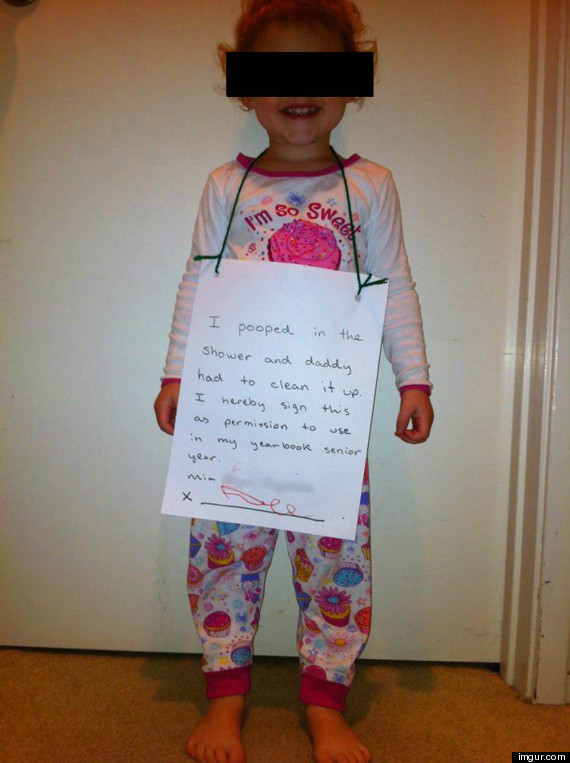 I'm so sweet
I pooped in the
shower and daddy
had to clean it up.
I hereby sign this
as permission to use
in my yearbook senior
year.
Mia
X
imgur.com